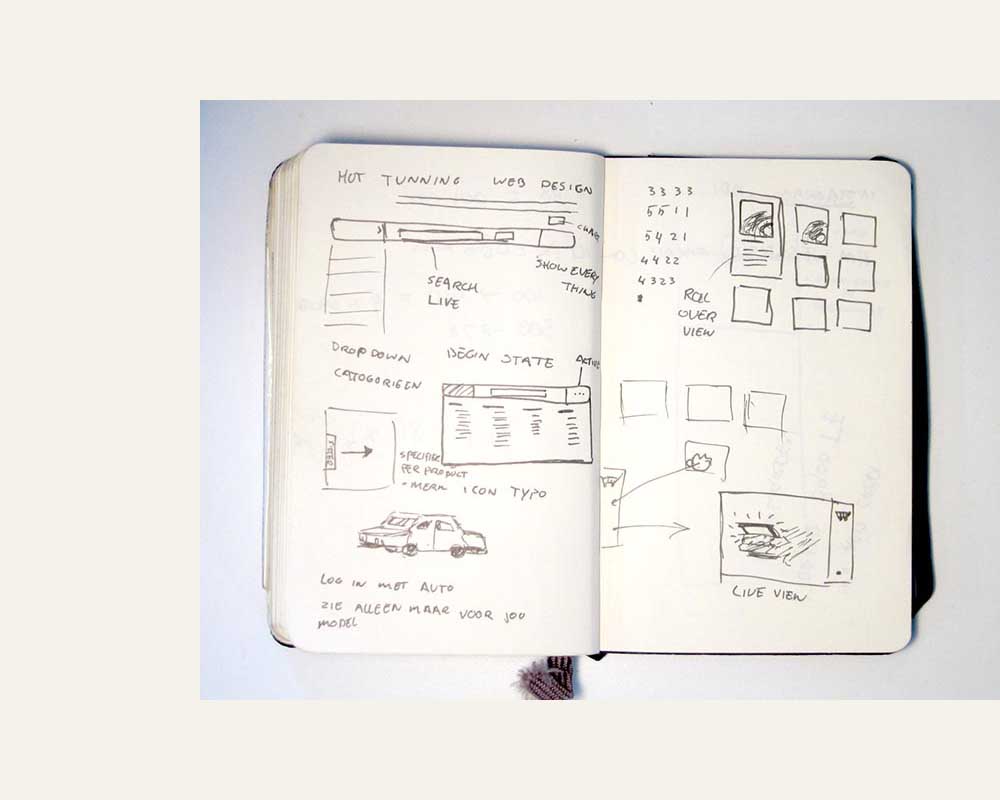 HOT TUNNING WEB DESIGN
SHOW EVERY
THING
SEARCH
LIVE
DROPDOWN
CATOGORIEEN
BEGIN STATE
SPECIFIEK
PER PRODUCT
- MERK ICON TYPO
LOG IN MET AUTO
ZIE ALLEEN MAAR VOOR JOU
MODEL
3 3 3 3
5 5 1 1
5 4 2 1
4 4 2 2
4 3 2 3
ROLL
OVER
VIEW
LIVE VIEW